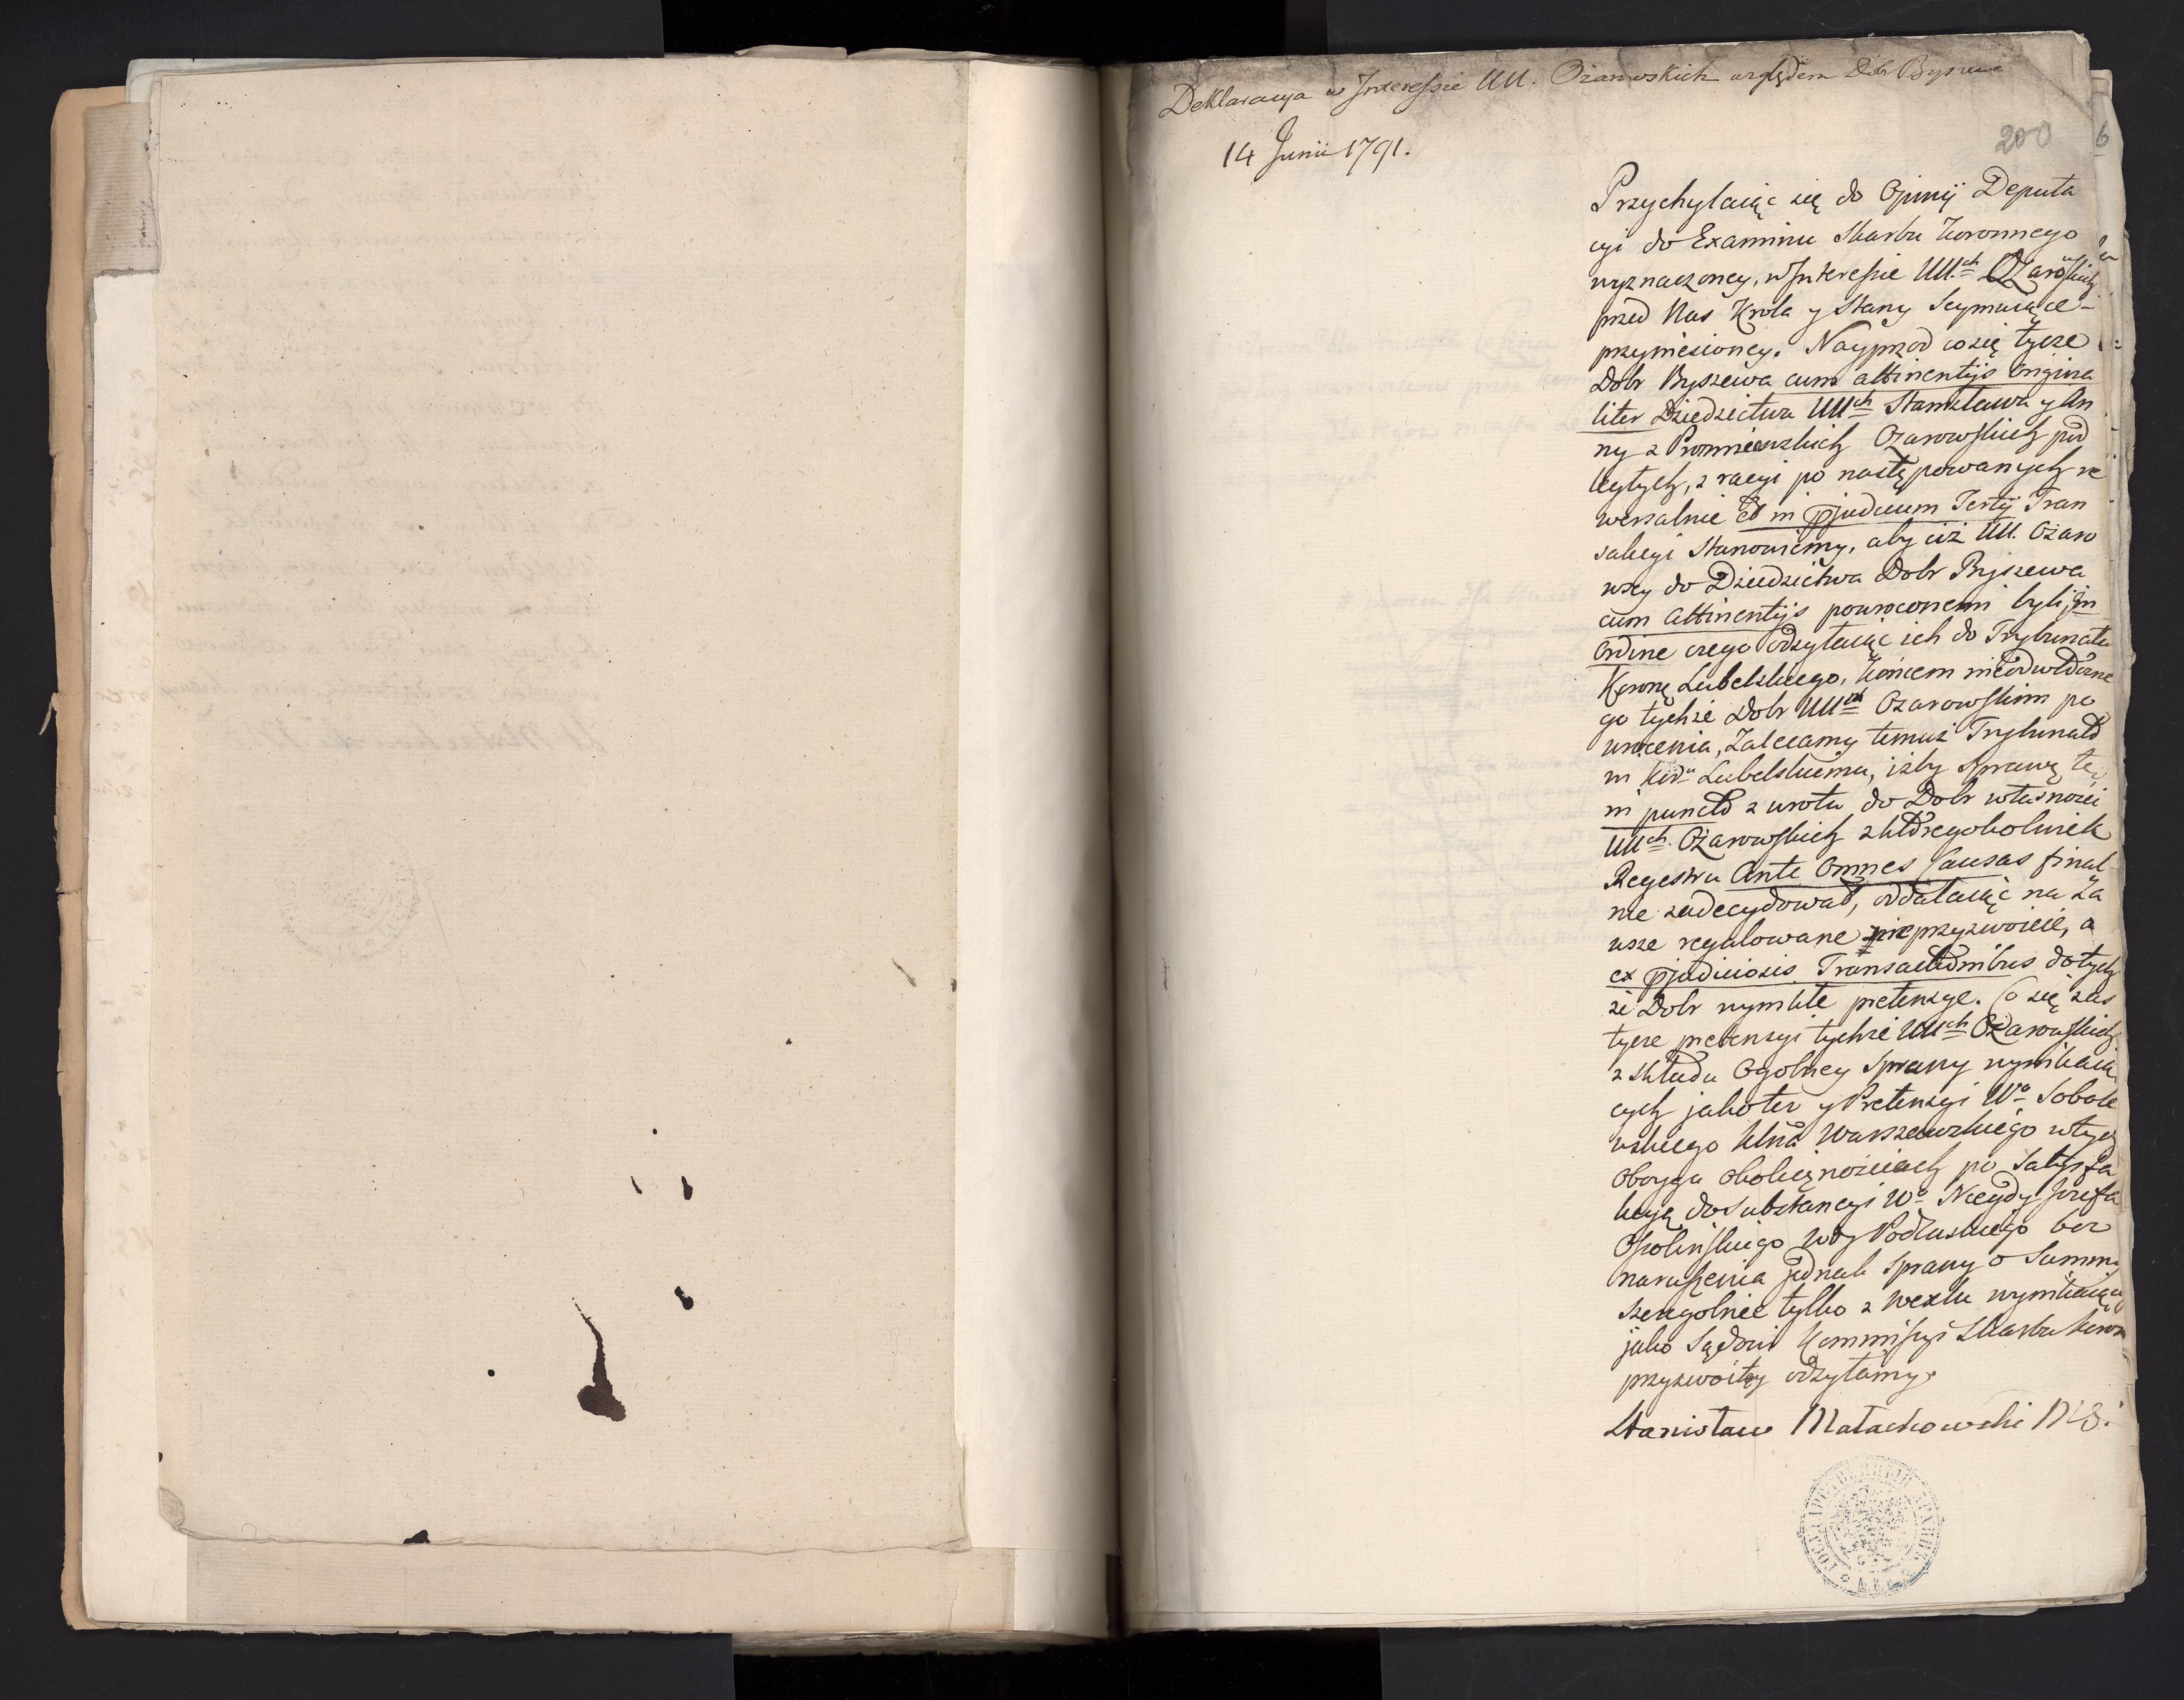 Deklaracya w Interessie UU. Ożarowskich względem Dóbr Byszewa
14 Junii 1791.
200
6
Przychylaiąc się do Opinij Deputa
cyi do Examinu Skarbu Koronnego
wyznaczoney, w Interessie UU.ch Ożarowskich
przed Nas Krola y Stany Seymuiące
przyniesioney. Nayprzod co się tycze
Dobr Byszewa cum attinentijs Origina
liter Dziedzictwa UUch Stanisława y An
ny z Ożarowskich pod
lległych, z racyi po następowanych re
wersalnie et in pjudicium Tertij Tran
sakcyi Stanowiemy, aby ciż UU. Ożaro
wscy do Dziedzictwa Dobr Byszewa
cum attinentijs powroconemi byli, In
Ordine czego odsyłaiąc ich do Trybunału
Koronę Lubelskiego, końcem nieodwłoczne
go tychże Dobr UUm Ożarowskim po
wrocenia, Zalecamy temuż Trybunało
wi Lubelskiemu, iżby Sprawę tę
in puncto zwrotu do Dobr własności
UUch Ożarowskich z któregokolwiek
Regestru Ante Omnes Causas final
nie zadecydował, oddalaiąc na Za
wsze regulowane nieprzyzwoicie, a
ex pjudiciosis Transactionibus do tych
że Dobr wynikłe pretensye. Co się zas
tycze pretensyi tychże UUch Ożarowskich
z składu Ogolney Sprawy wynikaią
cych jakoteż y Pretensyi Wo Sobole
wskiego Warszawskiego w tych
oboyga okolicznościach po Satysfa
kcyą do Substancyi Wo Niegdy Jozefa
Ossolińskiego Wdy Podlaskiego bez
naruszenia jednak Sprawy o Summy
szczegolnie tylko z wexlu wynikaiące
jako Sądowi Kommissyi Skarbu Koron
przyzwoitey odsyłamy.
Stanisław Małachowski